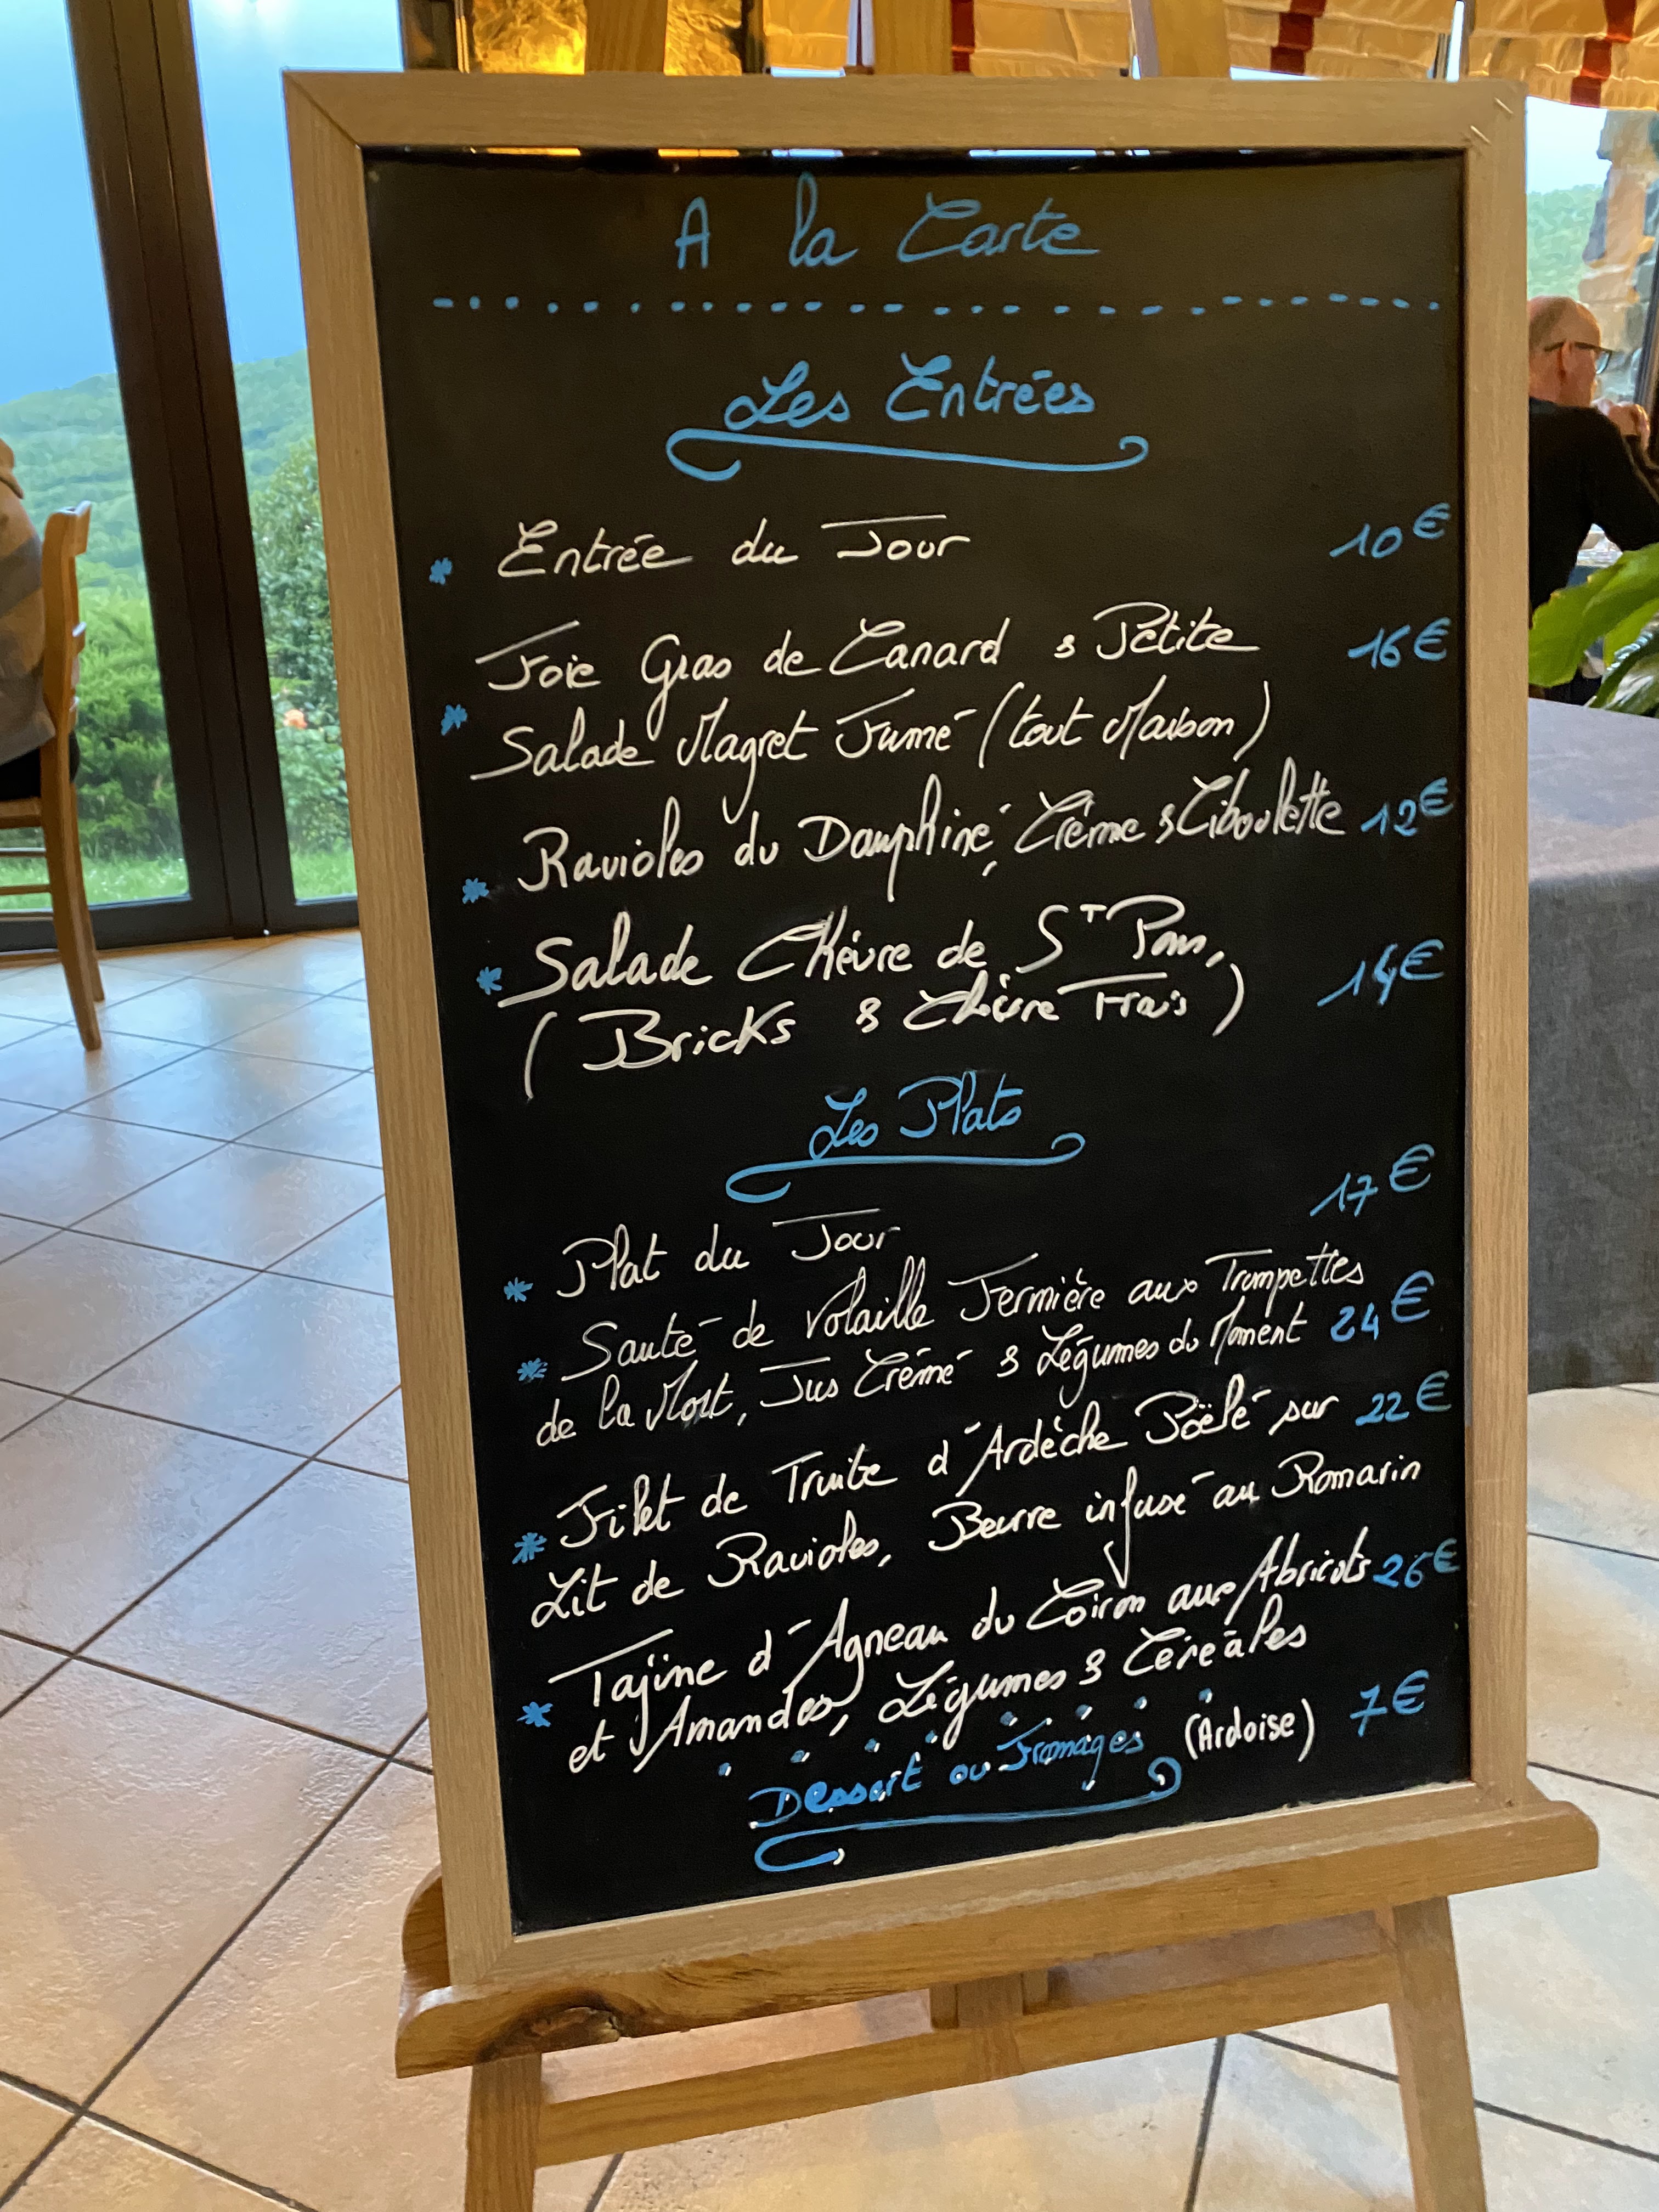 A la Carte
Les Entrées
* Entrée du Jour 10€
Foie Gras de Canard & Petite 16€
* Salade Magret Fumé (tout Maison)
* Ravioles du Dauphiné, Crème & Ciboulette 12€
* Salade Chèvre de St Pons,
(Bricks & Chèvre Frais) 14€
Les Plats
17€
* Plat du Jour
* Sauté de Volaille Fermière aux Trompettes
de la Mort, Jus Crémé & Légumes du Moment 24€
* Filet de Truite d'Ardèche Poëlé sur 22€
Lit de Ravioles, Beurre infusé au Romarin
* Tajine d'Agneau du Coiron aux Abricots 26€
et Amandes, Légumes & Céréales
Dessert ou Fromages (Ardoise) 7€